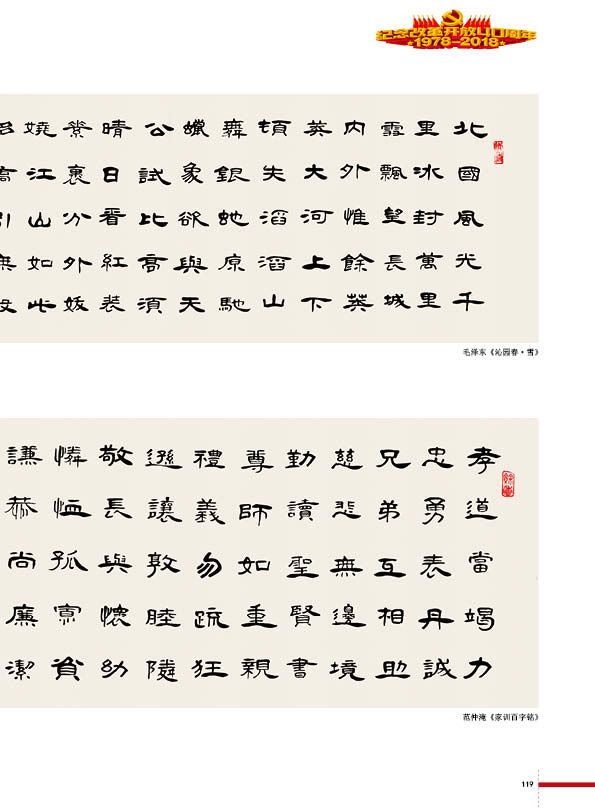 纪念改革开放40周年
1978-2018
北國風光千
里冰封萬里
雪飄望長城
内外惟餘莽
莽大河上下
頓失滔滔山
舞銀蛇原馳
蠟象欲與天
公試比高須
晴日看紅裝
素裹分外妖
嬈江山如此
毛泽东《沁园春·雪》
孝道當竭力
忠勇表丹誠
兄弟互相助
慈悲無邊境
勤讀聖賢書
尊師如重親
禮義勿疏狂
遜讓敦睦隣
敬長與懷幼
憐恤孤寡貧
謙恭尚廉潔
范仲淹《家训百字铭》
119